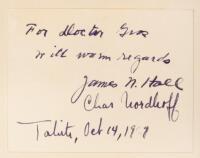 For Doctor Gros
with warm regards
James N. Hall
Chas Nordhoff
Tahiti, Oct 14,